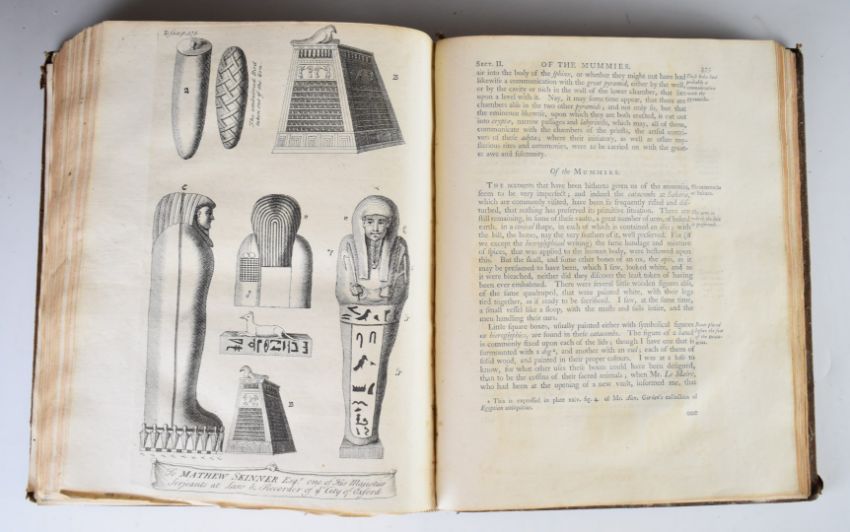 The embalmed Bird
taken out of the Urn
a
B
C
B
To MATHEW SKINNER Esqr. one of His Majesties
Serjeants at Law & Recorder of ye City of Oxford
SECT. II. OF THE MUMMIES. 375
air into the body of the sphinx, or whether they might not have had
likewise a communication with the great pyramid, either by the well,
or by the cavity or nich in the wall of the lower chamber, that lies
upon a level with it. Nay, it may some time appear, that there are
chambers also in the two other pyramids; and not only so, but that
the eminence likewise, upon which they are both erected, is cut out
into cryptæ, narrow passages and labyrinths, which may, all of them,
communicate with the chambers of the priests, the artful contri-
vers of these adyta; where their initiatory, as well as other my-
sterious rites and ceremonies, were to be carried on with the great-
er awe and solemnity.
Of the MUMMIES.
THE accounts that have been hitherto given us of the mummies,
seem to be very imperfect; and indeed the catacombs at Sakara,
which are commonly visited, have been so frequently rifled and dis-
turbed, that nothing has preserved its primitive situation. There are
still remaining, in some of these vaults, a great number of urns, of baked
earth, in a conical shape, in each of which is contained an ibis; with
the bill, the bones, nay the very feathers of it, well preserved. For (if
we except the hieroglyphical writing) the same bandage and mixture
of spices, that was applied to the human body, were bestowed upon
this. But the skull, and some other bones of an ox, the apis, as it
may be presumed to have been, which I saw, looked white, and as
it were bleached, neither did they discover the least token of having
been ever embalmed. There were several little wooden figures also,
of the same quadruped, that were painted white, with their legs
tied together, as if ready to be sacrificed. I saw, at the same time,
a small vessel like a sloop, with the masts and sails intire, and the
men handling their oars.
Little square boxes, usually painted either with symbolical figures
or hieroglyphics, are found in these catacombs. The figure of a hawk
is commonly fixed upon each of the lids; though I have one that is
surmounted with a dog*, and another with an owl; each of them of
solid wood, and painted in their proper colours. I was at a loss to
know, for what other uses these boxes could have been designed,
than to be the coffins of their sacred animals; when Mr. Le Maire,
who had been at the opening of a new vault, informed me, that
* This is expressed in plate xxiv. fig. 4. of Mr. Alex. Gordon's collection of
Egyptian antiquities.
one